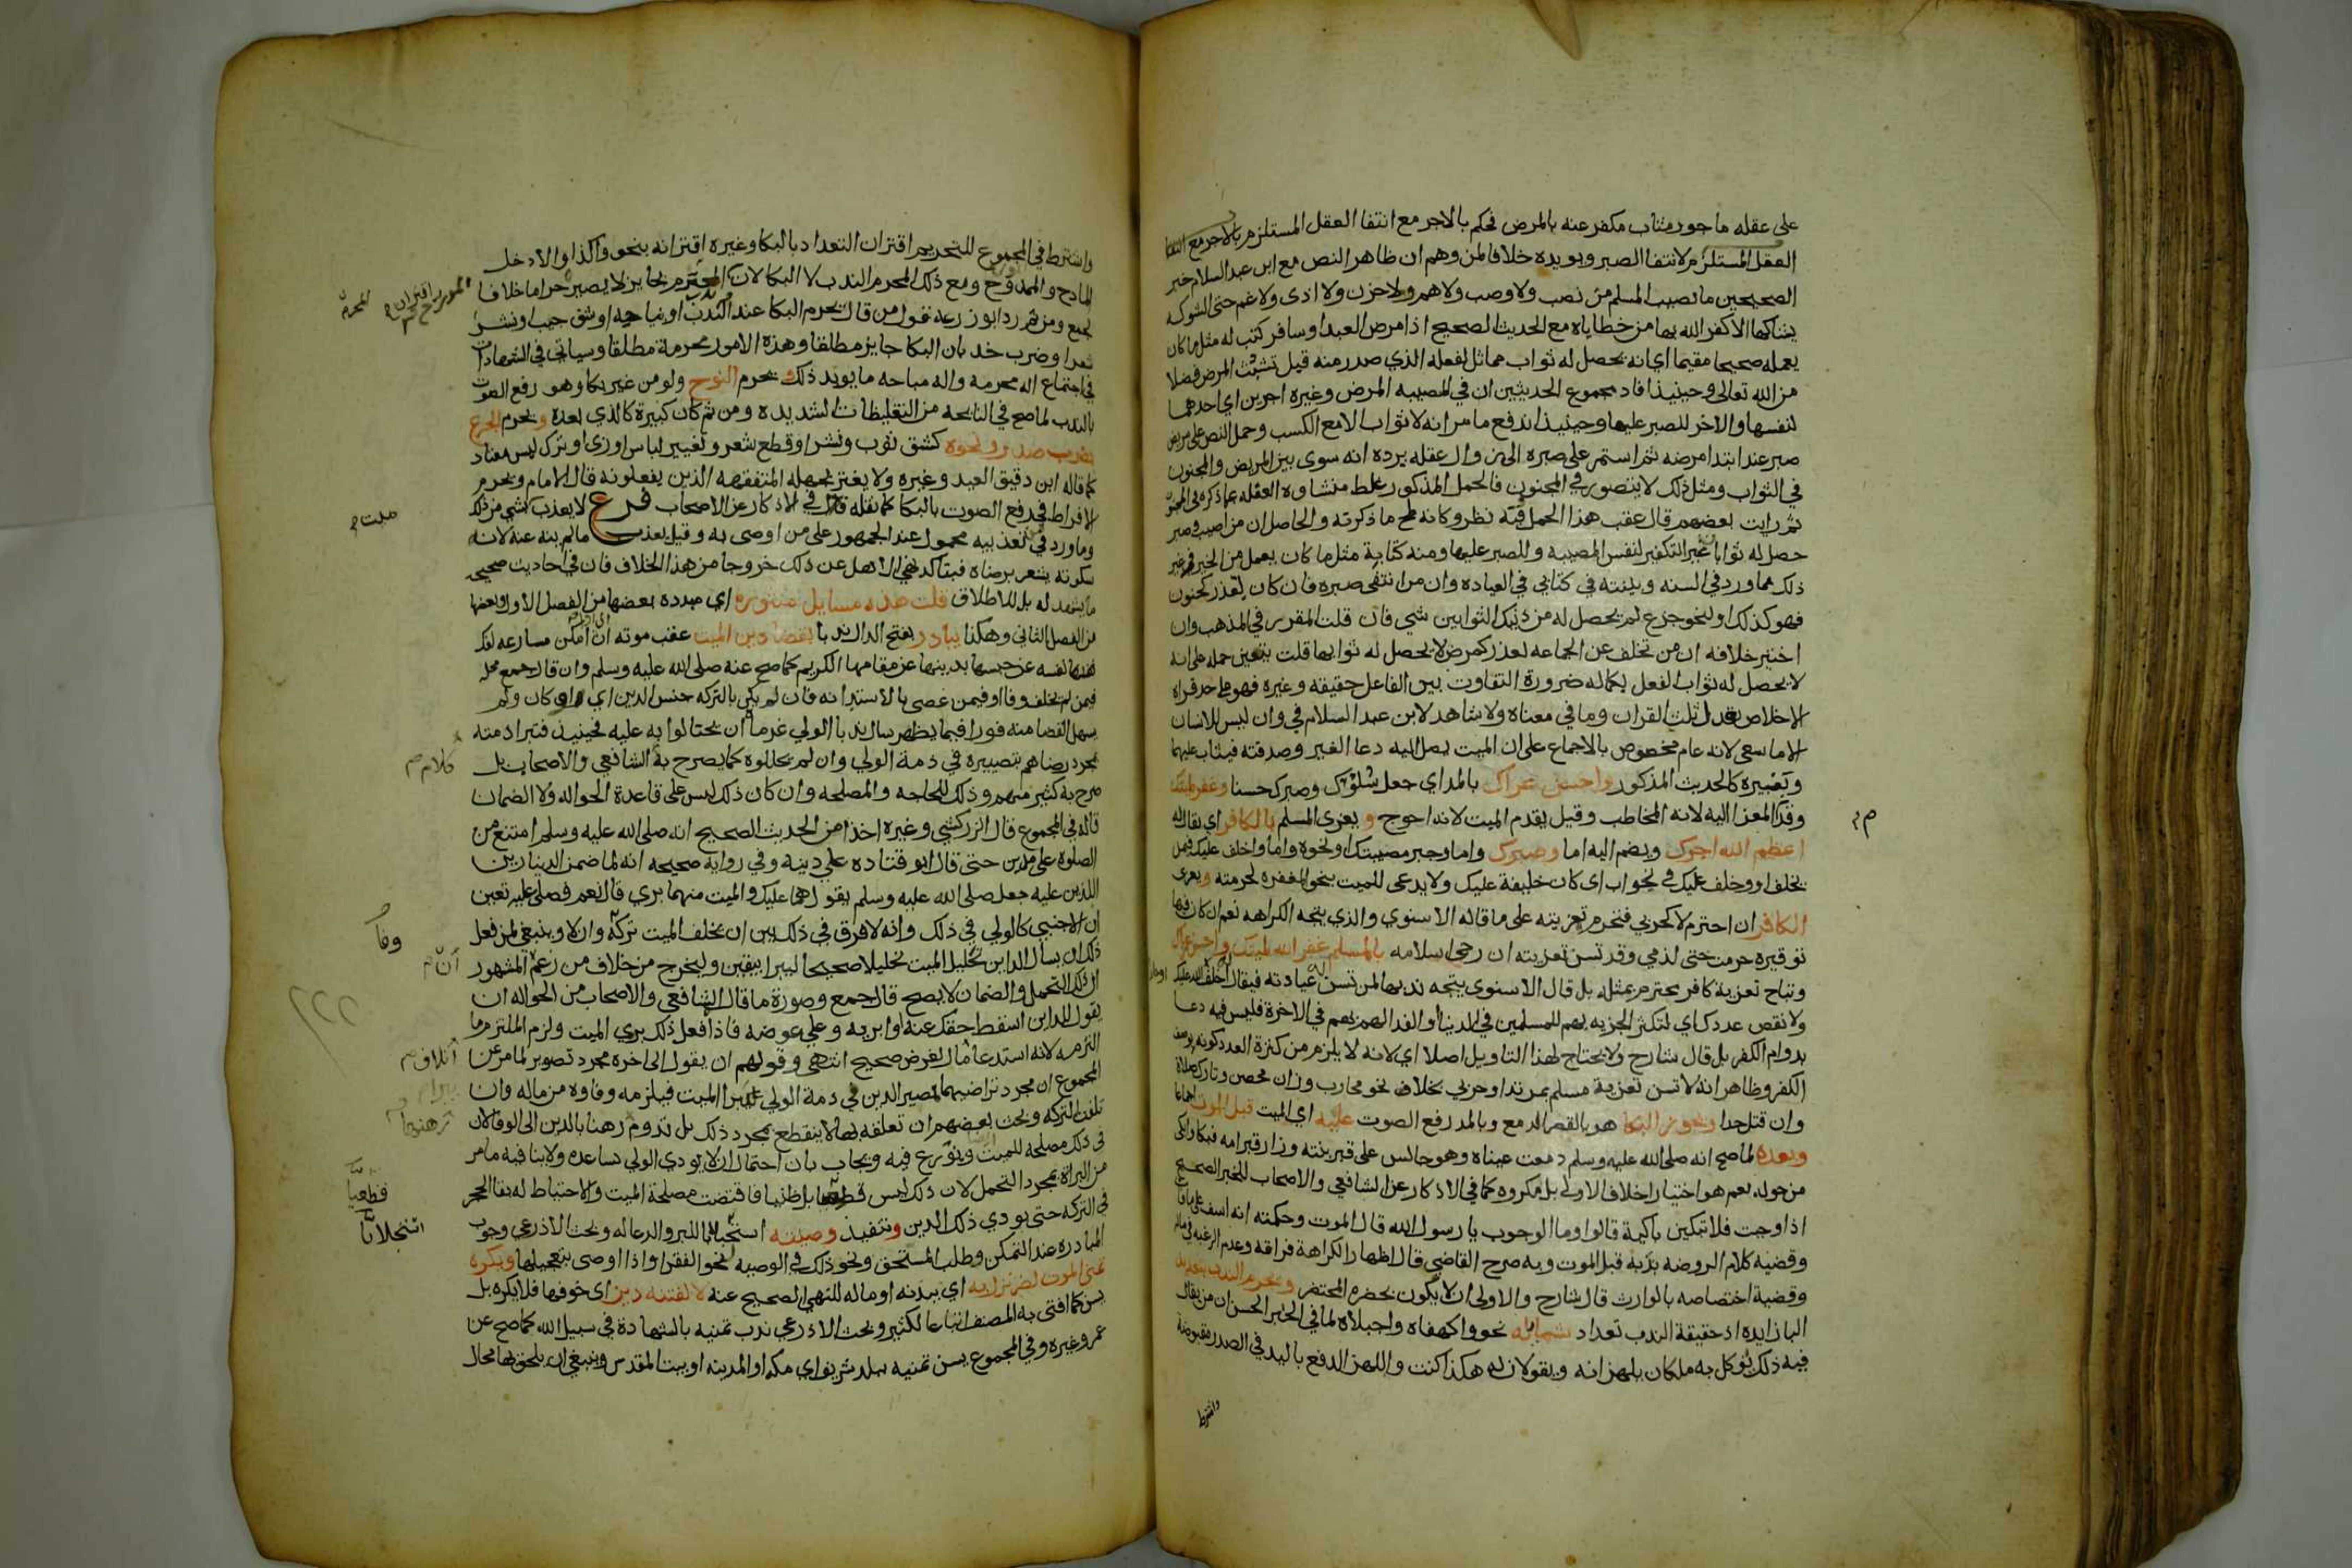 على عقله ماجور مثاب مكفر عنه بالمرض فحكم بالاجر مع انتفا العقل المستلزم بالاجر مع انتفا
العقل المستلزم لانتفا الصبر ويويده خلافا لمن وهم ان ظاهر النص مع ابن عبد السلام خبر
الصحيحين ما يصيب المسلم من نصب ولا وصب ولا هم ولا حزن ولا اذى ولا غم حتى الشوكه
يشاكها الا كفر الله بها من خطاياه مع الحديث الصحيح اذا مرض العبد او سافر كتب له مثل ما كان
يعمله صحيحا مقيما اي انه يحصل له ثواب مماثل لفعله الذي صدر منه قبل تشبث المرض فضلا
من الله تعالى وحينيذ افاد مجموع الحديثين ان في المصيبه المرض وغيره اجرين اي احدهما
لنفسها والاخر للصبر عليها وحينيذ اندفع ما مر انه لا ثواب الا مع الكسب وحمل النص على مريض
صبر عند ابتدا مرضه ثم استمر على صبره الى زوال عقله يرده انه سوى بين المريض والمجنون
في الثواب ومثل ذلك لا يتصور في المجنون فالحمل المذكور غلط منشاوه الغفله عما ذكره في المجنون
ثم رايت بعضهم قال عقب هذا الحمل فيه نظر وكانه لمح ما ذكرته والحاصل ان من اصيب وصبر
حصل له ثوابان غير التكفير لنفس المصيبه وللصبر عليها ومنه كتابة مثل ما كان يعمل من الخير وغير
ذلك مما ورد في السنه وبينته في كتابي في العياده وان من انتفى صبره فان كان لعذر كجنون
فهو كذلك او لنحو جزع لم يحصل له من ذينك الثوابين شي فان قلت المقرر في المذهب وان
اختير خلافه ان من تخلف عن الجماعه لعذر كمرض لا يحصل له ثوابها قلت يتعين حمله على انه
لا يحصل له ثواب الفعل بكماله ضرورة التفاوت بين الفاعل حقيقه وغيره فهو على حد قراه
الاخلاص تعدل ثلث القران وما في معناه ولا شاهد لابن عبد السلام في وان ليس للانسان
الا ما سعى لانه عام مخصوص بالاجماع على ان الميت يصل اليه دعا الغير وصدقته فيثاب عليهما
وبغيره كالحديث المذكور واحسن عزاك بالمد اي جعل سلوك وصبرك حسنا وغفر لميتك
وقدم المعزا اليه لانه المخاطب وقيل يقدم الميت لانه احوج ويعزى المسلم بالكافر اي يقال له
اعظم الله اجرك ويضم اليه اما وصبرك واما وجبر مصيبتك او نحوه واما واخلف عليك فيمن
يخلف او وخلف عليك في نحو اب اي كان خليفة عليك ولا يدعى للميت بنحو المغفره لحرمته ويعزى
الكافر ان احترم لا كحربي فتحرم تعزيته على ما قاله الاسنوي والذي يتجه الكراهه نعم ان كان فيها
توقيره حرمت حتى لذمي وقد تسن تعزيته ان رجي اسلامه بالمسلم غفر الله لميتك واحسن عزاك
وتباح تعزية كافر محترم بمثله بل قال الاسنوي يتجه ندبها لمن تسن عيادته فيقال اخلف الله عليك
ولا نقص عددك اي لتكثر الجزيه بهم للمسلمين في الدنيا او الفدا لهم بهم في الاخرة فليس فيه دعا
بدوام الكفر بل قال شارح ولا يحتاج لهذا التاويل اصلا اي لانه لا يلزم من كثرة العدد كونه بوصف
الكفر وظاهر انه لا تسن تعزية مسلم بمرتد او حربي بخلاف نحو محارب وزان محصن وتارك صلاة
وان قتل حدا ويجوز البكا هو بالقصر الدمع وبالمد رفع الصوت عليه اي الميت قبل الموت اجماعا
وبعده لما صح انه صلى الله عليه وسلم دمعت عيناه وهو جالس على قبر بنته وزار قبر امه فبكا وابكى
من حوله نعم هو اختيارا خلاف الاولى بل مكروه كما في الاذكار عن الشافعي والاصحاب للخبر الصحيح
اذا وجبت فلا تبكين باكية قالوا وما الوجوب يا رسول الله قال الموت وحكمته انه اسف على ما فات
وقضيه كلام الروضه ندبه قبل الموت وبه صرح القاضي قال اظهارا لكراهة فراقه وعدم الرغبه في ماله
وقضية اختصاصه بالوارث قال شارح والاولى ان لا يكون بحضره المحتضر ويحرم الندب بتعديد
البا زايده اذ حقيقة الندب تعداد شمايله نحو واكهفاه واجبلاه لما في الخبر الحسن ان من يقال
فيه ذلك يوكل به ملكان يلهزانه ويقولان له هكذا كنت واللهز الدفع باليد في الصدر مقبوضة
واشترط
واشترط في المجموع للتحريم اقتران التعداد بالبكا وغيره اقترانه بنحو واكذا والا دخل
المادح والمورخ ومع ذلك المحرم الندب لا البكا لان اقتران المحرم بجايز لا يصيره حراما خلافا
لجمع ومن ثم رد ابو زرعه قول من قال يحرم البكا عند الندب او نياحه او شق جيب او نشر
شعر او ضرب خد بان البكا جايز مطلقا وهذه الامور محرمة مطلقا وسياتي في الشهادات
في اجتماع اله محرمه واله مباحه ما يويد ذلك ويحرم النوح ولو من غير بكا وهو رفع الصوت
بالندب لما صح في النايحه من التغليظات الشديده ومن ثم كان كبيرة كالذي بعده ويحرم الجزع
بضرب صدر ونحوه كشق ثوب ونشر او قطع شعر وتغيير لباس او زي او ترك لبس معتاد
كما قاله ابن دقيق العيد وغيره ولا يغتر بجهله المتفقهه الذين يفعلونه قال الامام ويحرم
الافراط في رفع الصوت بالبكا كما نقله في الاذكار عن الاصحاب فرع لا يعذب ميت بشي من ذلك
وما ورد في تعذيبه محمول عند الجمهور على من اوصى به وقيل يعذب ما لم ينه عنه لانه
سكوته يشعر برضاه فيتاكد نهي الاهل عن ذلك خروجا من هذا الخلاف فان في احاديث صحيحه
ما يشهد له بل للاطلاق قلت هذه مسايل منثوره اي مبدده بعضها من الفصل الاول وبعضها
من الفصل الثاني وهكذا يبادر بفتح الدال ندبا بقضا دين الميت عقب موته ان امكن مسارعه لفك
نفسه عن حبسها بدينها عن مقامها الكريم كما صح عنه صلى الله عليه وسلم وان قال جمع محله
فيمن لم يخلف وفا او فيمن عصى بالاستدانه فان لم يكن بالتركه جنس الدين اي او كان ولم
يسهل القضا منه فورا فيما يظهر سال ندبا الولي غرماه ان يحتالوا به عليه فحينيذ فتبرا ذمته
بمجرد رضاهم بتصييره في ذمة الولي وان لم يحللوه كما يصرح به كلام الشافعي والاصحاب بل
صرح به كثير منهم وذلك للحاجه والمصلحه وان كان ذلك ليس على قاعدة الحواله ولا الضمان
قاله في المجموع قال الزركشي وغيره اخذا من الحديث الصحيح انه صلى الله عليه وسلم امتنع من
الصلوة على مدين حتى قال ابو قتاده علي دينه وفي رواية صحيحه انه لما ضمن الدينارين
اللذين عليه جعل صلى الله عليه وسلم يقول هما عليك والميت منهما بري قال نعم فصلى عليه تعين
ان الاجنبي كالولي في ذلك وانه لا فرق في ذلك بين ان يخلف الميت تركة وان لا وينبغي لمن فعل
ذلك ان يسال الداين تحليل الميت تحليلا صحيحا ليبرا بيقين وليخرج من خلاف من زعم ان المشهور
ان ذلك التحمل والضمان لا يصح قال جمع وصورة ما قال الشافعي والاصحاب من الحواله ان
يقول للداين اسقط حقك عنه او ابريه وعلي عوضه فاذا فعل ذلك بري الميت ولزم الملتزم ما
التزمه لانه استدعا مال لغرض صحيح انتهى وقولهم ان يقول الى اخره مجرد تصوير لما مر عن
المجموع ان مجرد تراضيهما بمصير الدين في ذمة الولي يبرا الميت فيلزمه وفاوه من ماله وان
تلفت التركه وبحث بعضهم ان تعلقه بها لا ينقطع بمجرد ذلك بل يدوم رهنا بالدين الى الوفا لان
في ذلك مصلحه للميت ونوزع فيه ويجاب بان احتمال ان لا يودي الولي يساعده ولا ينافيه ما مر
من البراة بمجرد التحمل لان ذلك ليس قطعيا بل ظنيا فاقتضت مصلحة الميت والاحتياط له بقا الحجر
في التركه حتى يودي ذلك الدين وتنفيذ وصيته استجلابا للبر والدعا له وبحث الاذرعي وجوب
المبادره عند التمكن وطلب المستحق ونحو ذلك في الوصيه لنحو الفقرا واذا اوصى بتعجيلها ويكره
تمنى الموت لضر نزل به اي ببدنه او ماله للنهي الصحيح عنه لا لفتنه دين اي خوفها فلا يكره بل
يسن كما افتى به المصنف اتباعا لكثير وبحث الاذرعي ندب تمنيه بالشهادة في سبيل الله كما صح عن
عمر وغيره وفي المجموع يسن تمنيه ببلد شريف اي مكه او المدينه او بيت المقدس وينبغي ان يلحق بها محال
المحرم
ميت
كلام
وفا
ان
اتلاف
قطعيا
استجلابا